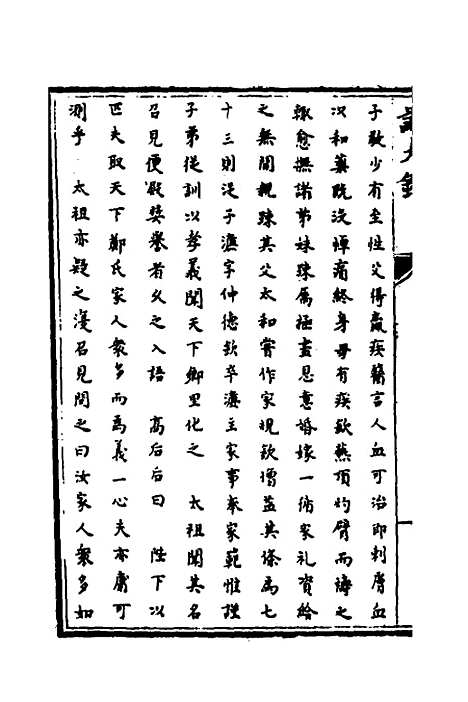 子敬少有至性父得羸疾醫言人血可治即刺膚血
况和藥既没悼痛終身母有疾欽爇頂灼臂而禱之
輒愈撫諸弟妹踈属極盡恩意婚嫁一術家礼資給
之無間親踈其父太和嘗作家規欽增益其條為七
十三則從子濂字仲德欽卒濂主家事奉家範惟謹
子弟從訓以孝義聞天下鄉里化之 太祖聞其名
召見便殿奬譽者久之入語 高后后曰 陛下以
匹夫取天下鄭氏家人衆多而爲義一心夫亦庸可
測乎 太祖亦疑之漫召見問之曰汝家人衆多如